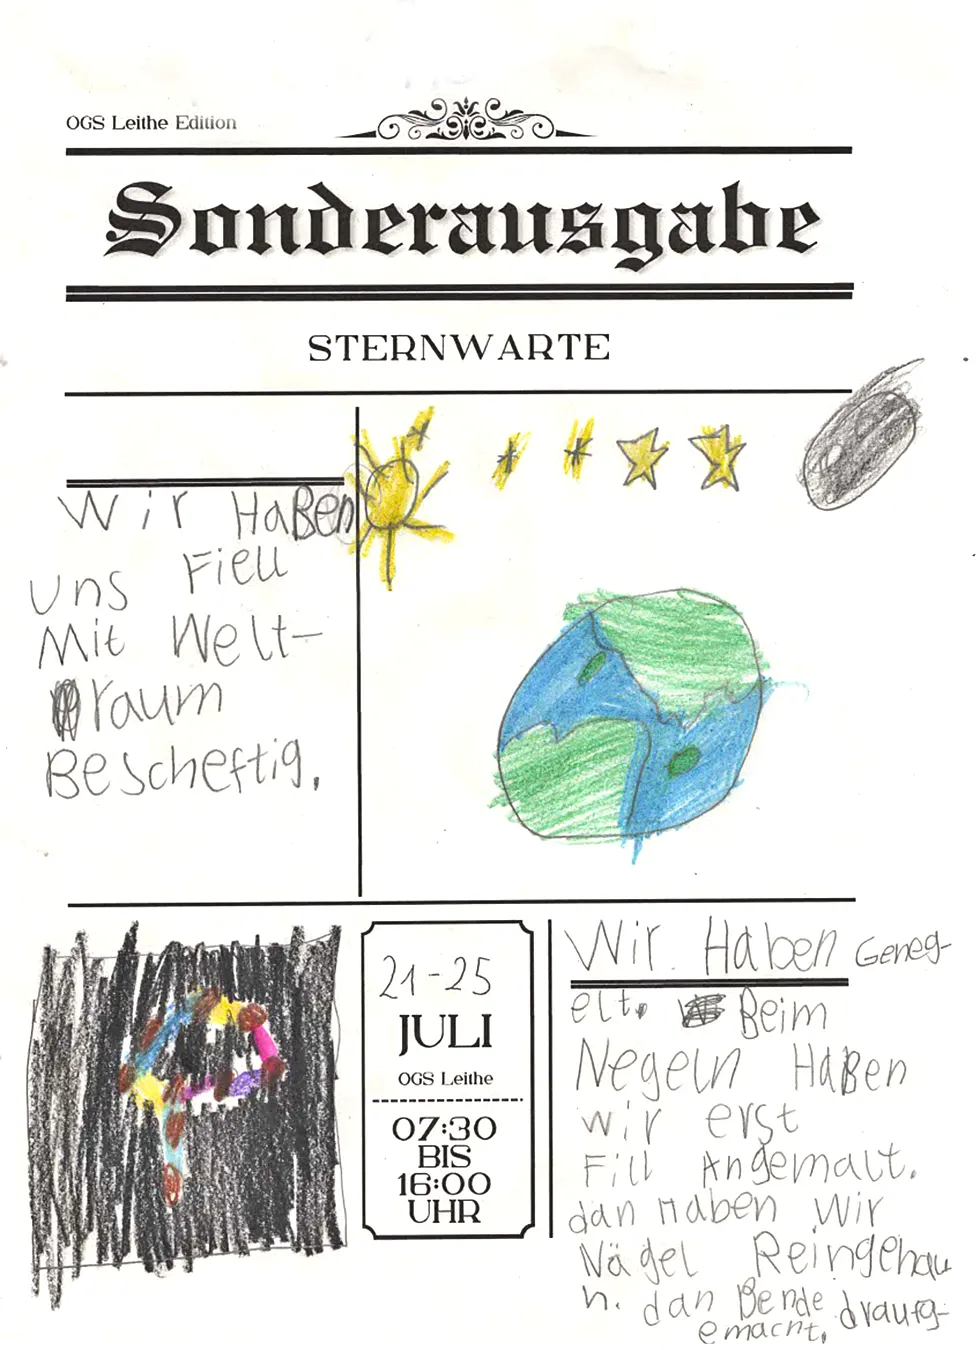 OGS Leithe Edition
Sonderausgabe
STERNWARTE
Wir Haben
uns Fiell
Mit Welt-
raum
Bescheftig.
21-25
JULI
OGS Leithe
07:30
BIS
16:00
UHR
Wir Haben Geneg-
elt. Beim
Negeln Haben
wir erst
Fill Angemalt.
dan Haben Wir
Nägel Reingehau
n. dan Bende draufg-
emacht.